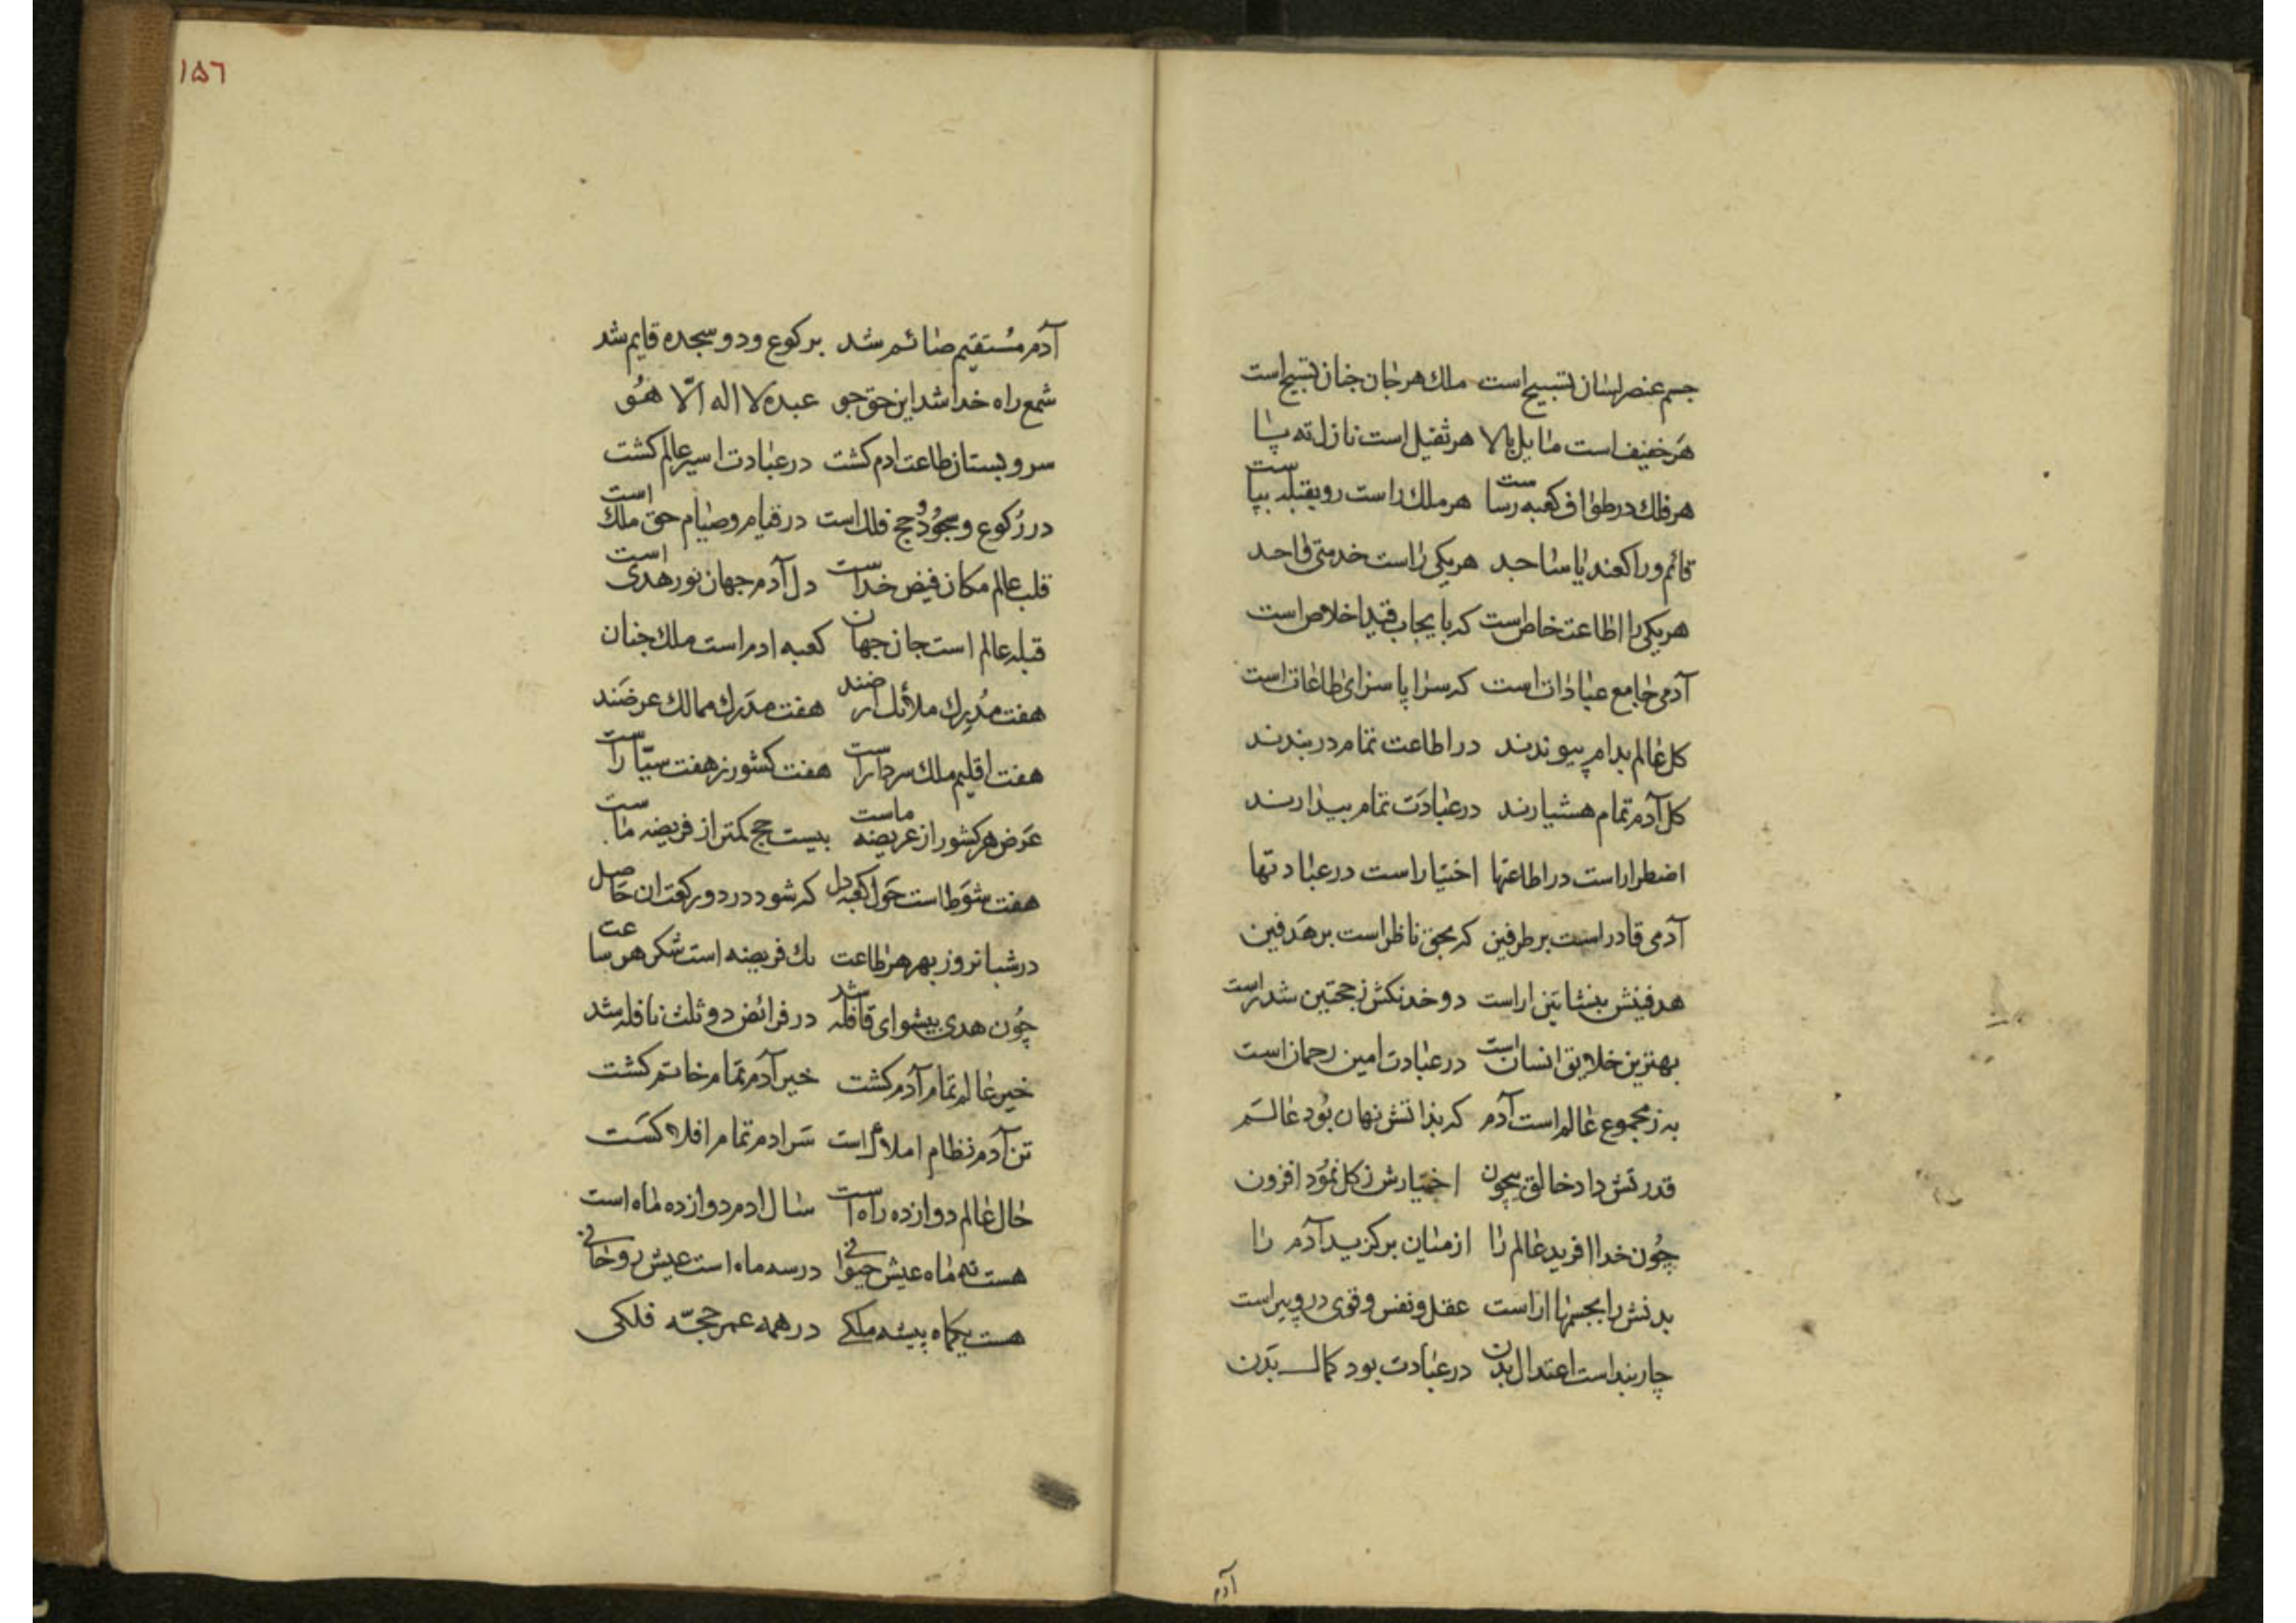 جسم عنصر لسان تسبیح است ملك هر جان جنان تسبیح است
هر خفیف است مایل بالا هر ثقیل است نازل ته پا
هر فلك در طواف کعبه رساست هر ملك راست رو بقبله بپاست
قائم و راکعند یا ساجد هر یکی راست خدمتی واحد
هر یکی را اطاعت خاص است که بایجاب قید اخلاص است
آدمی جامع عبادات است که سراپا سزای طاعات است
کل عالم بدام پیوندند در اطاعت تمام در بندند
کل آدم تمام هشیارند در عبادت تمام بیدارند
اضطرار است در اطاعتها اختیار است در عبادتها
آدمی قادر است بر طرفین که بحق ناظر است بر هدفین
هدفینش بنشاتین اراست دو خدنکش ز حجتین شد راست
بهترین خلایق انسان است در عبادت امین رحمان است
به ز مجموع عالم است آدم که بذاتش نهان بود عالم
قدرتش داد خالق بیچون اختیارش ز کل نمود افزون
چون خدا افرید عالم را از میان برکزید آدم را
بدنش را بجسمها اراست عقل و نفس و قوی در و پیراست
چار بند است اعتدال بدن در عبادت بود کمال بدن
آدم
۱۵٦
آدم مستقیم صائم شد برکوع و دو سجده قایم شد
شمع راه خدا شد این حق جو عبده لا اله الا هو
سرو بستان طاعت ادم کشت در عبادت اسیر عالم کشت
در رکوع و سجود و حج فلك است در قیام و صیام حق ملك است
قلب عالم مکان فیض خداست دل آدم جهان نور هدی است
قبله عالم است جان جهان کعبه ادم است ملك جنان
هفت مدیرك ملائك ارضند هفت مدرك ممالك عرضند
هفت اقلیم ملك سرداراست هفت کشور ز هفت سیاراست
عرض هر کشور از عریضه ماست بیست حج کمتر از فریضه ماست
هفت شوط است حول کعبه دل که شود در دو رکعت ان حاصل
در شبانروز بهر هر طاعت یك فریضه است شکر هر ساعت
چون هدی پیشوای قافله شد در فرائض دو ثلث نافله شد
خیر عالم تمام آدم کشت خیر آدم تمام خاتم کشت
تن آدم نظام املاك است سر ادم تمام افلاكست
حال عالم دوازده راه است سال ادم دوازده ماه است
هست نه ماه عیش حیوانی در سه ماه است عیش روحانی
هست یکماه پیشه ملکی در همه عمر حجه فلکی